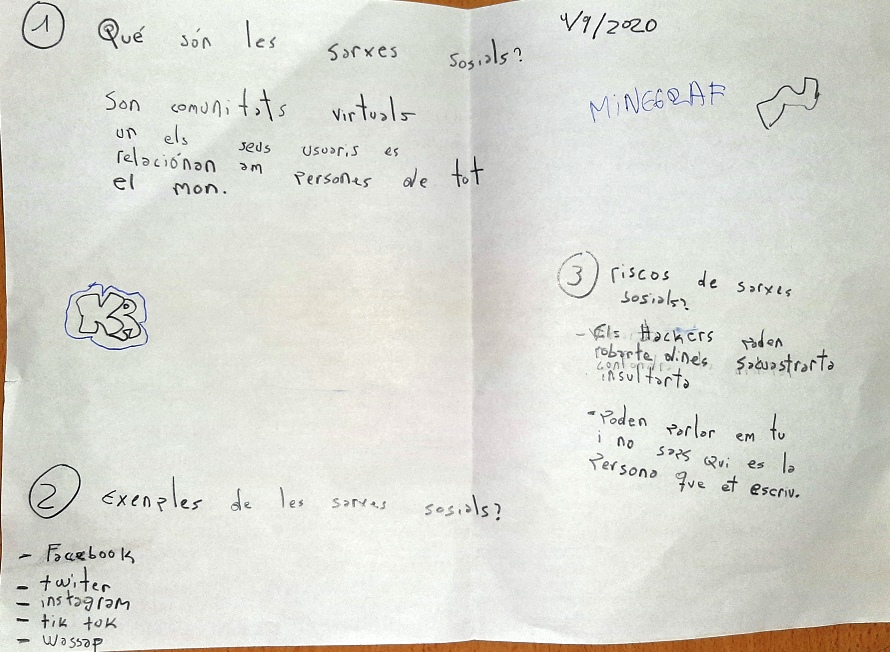 1 Qué són les sarxes sosials?
Son comunitats virtuals
un els seus usuaris es
relaciónan am persones de tot
el mon.
KR
2 Exenples de les sarxes sosials?
- Facebook
- twiter
- instagram
- tik tok
- wassap
1/9/2020
MiNEGRAF
3 riscos de sarxes
sosials?
- Els Hackers poden
robarte dines sacuastrarta
insultarta
- Poden parlar em tu
i no saps qui es la
persona que et escriu.